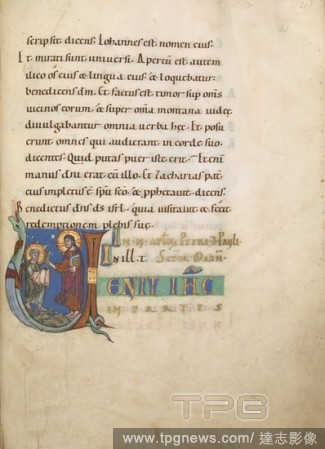 scripsit dicens. Iohannes est nomen eius.
Et mirati sunt universi. Apertũ est autem
ilico os eius & lingua eius & loquebatur
benedicens dm̃. Et factus est timor sup om̃s
vicinos eorum. & super om̃a montana iudeę
divulgabantur omnia verba hęc. Et posu
erunt omnes qui audierant in corde suo
dicentes. Quid putas puer iste erit. Et enĩ
manus dñi erat cũ illo. Et zacharias pat
eius impletus ẽ spũ sc̃o. & pphetavit dicens.
Benedictus dñs ds isrl. quia visitavit & fecit
redemptionem plebis suę.
Petri & Pauli
In ill t.
VENIT IHC
IN PARTES
TPG
www.tpgnews.com / 達志影像